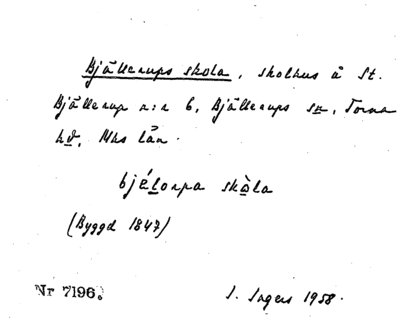 Bjällerups skola, skolhus å St.
Bjällerup n:r 6, Bjällerups sn, Torna
hd, Mhs län.
bjélorpa skòla
(Byggd 1847)
Nr 7196. I. Ingers 1958.